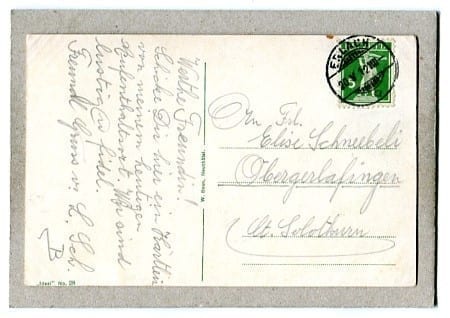 Werthe Freundin!
Schicke Dir hier ein Kärtlein
von meinem heutigen
Aufenthaltsort. Wir sind
lustig & fidel.
Freundl. Gruss v. L. Sch.
B
W. Bous, Neuchâtel.
„Ideal" No. 28
ERLACH
5
An Frl.
Elise Schneebeli
Obergerlafingen
Ct. Solothurn